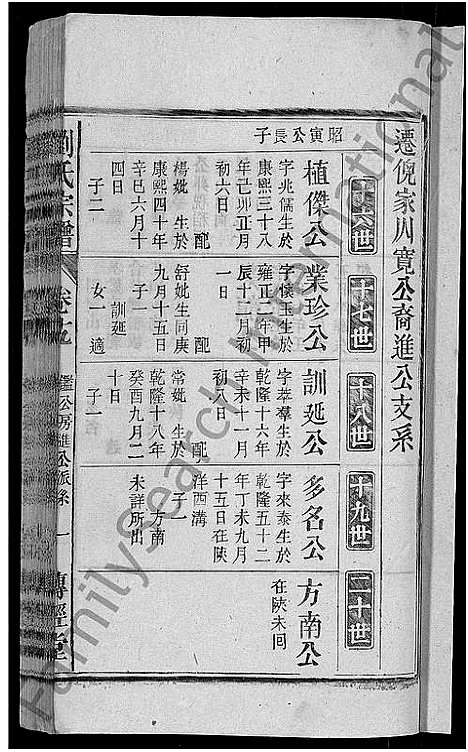 遷倪家凹寬公裔進公支系
十六世
十七世
十八世
十九世
二十世
昭寅公長子
植傑公
字兆儒生於
康熙三十八
年己卯正月
初六日
配
楊妣生於
康熙四十年
辛巳六月十
四日
子二
業珍公
字懷玉生於
雍正二年甲
辰十二月初
一日
配
舒妣生同庚
九月十五日
子一
訓延
女一適
訓延公
字萃羣生於
乾隆十六年
辛未十一月
初八日
配
常妣生於
乾隆十八年
癸酉九月二
十日
子一
多名公
字來泰生於
乾隆五十二
年丁未九月
十五日在陝
洋西溝
子一
方南
未詳所出
方南公
在陝未回
劉氏宗譜
卷
公房進公派系
一
傳經堂
FamilySearch International